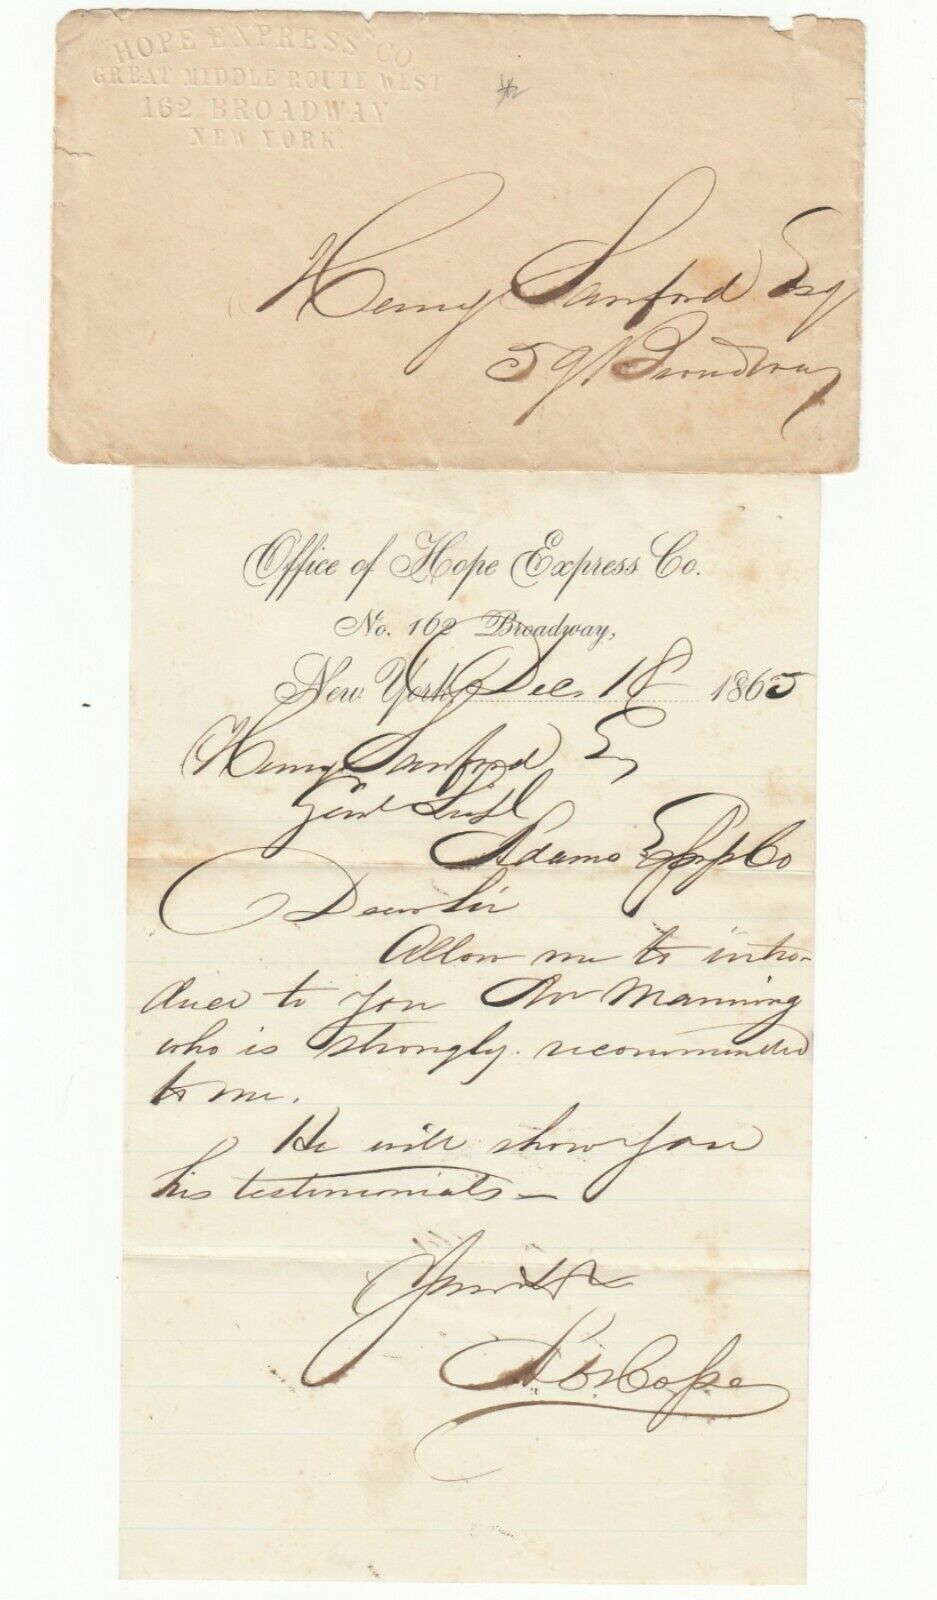 HOPE EXPRESS CO.
GREAT MIDDLE ROUTE WEST
162 BROADWAY
NEW YORK.
Henry Sanford Esq
59 Broadway
Office of Hope Express Co.
No. 162 Broadway,
New York, Dec. 18 1865
Henry Sanford Esq
Genl Supt
Adams Exp Co
Dear Sir
Allow me to intro-
duce to you Mr Manning
who is strongly recommended
to me.
He will show you
his testimonials —
Yours &c
Hope